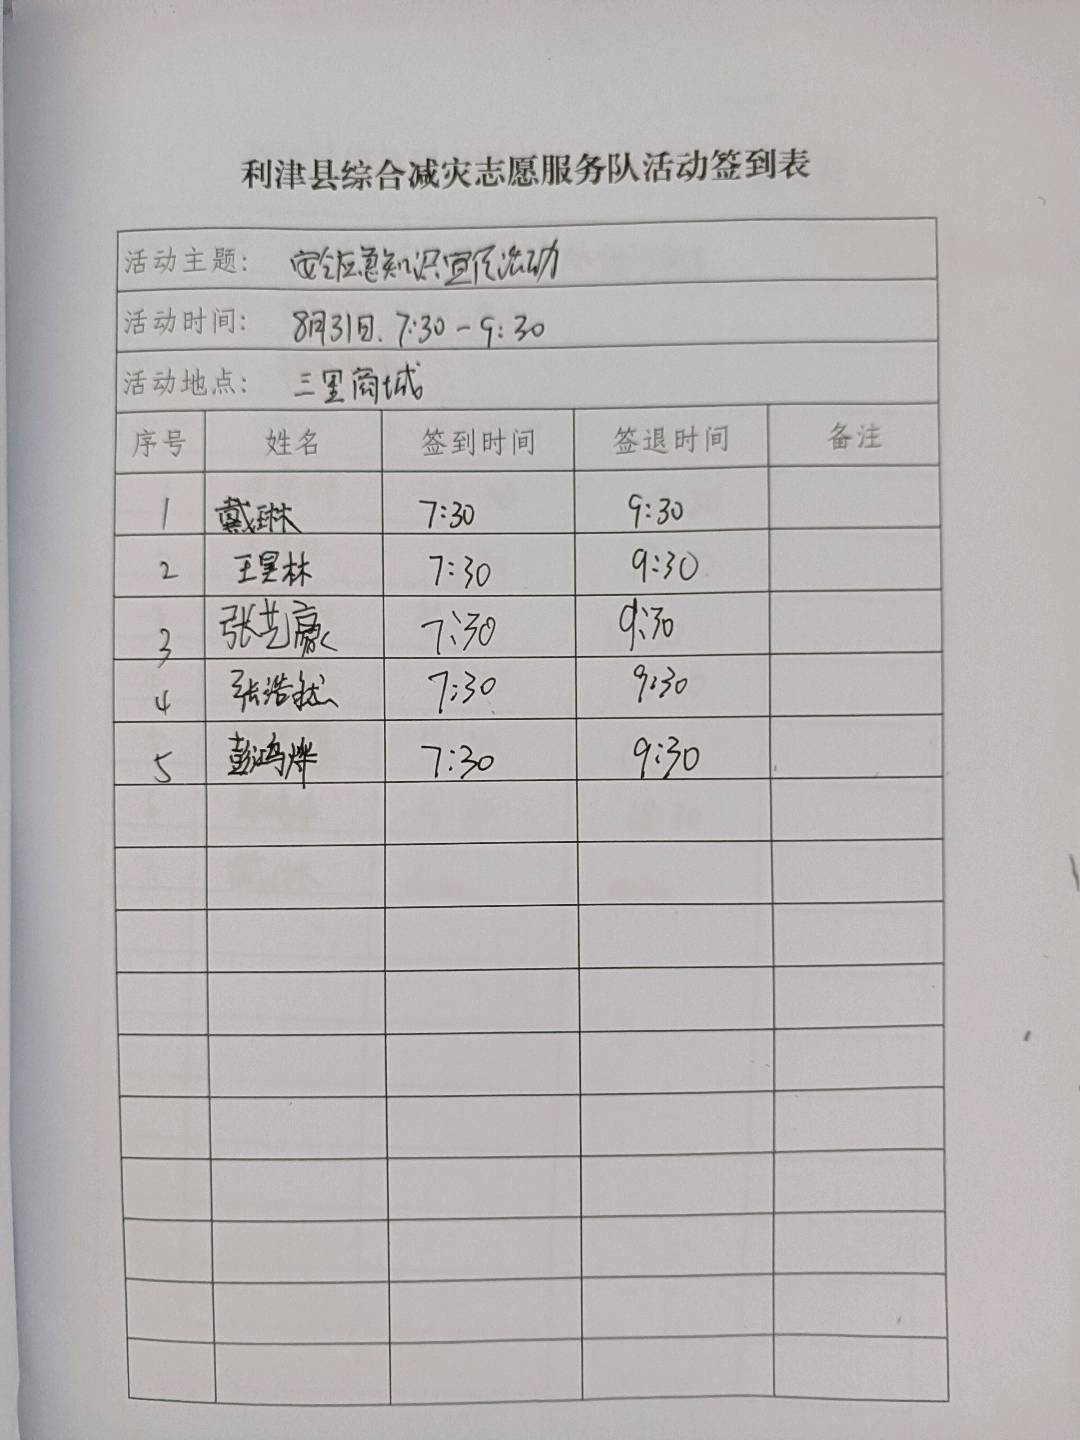 利津县综合减灾志愿服务队活动签到表
活动主题: 安全应急知识宣传活动
活动时间: 8月31日. 7:30-9:30
活动地点: 三里商城
序号 姓名 签到时间 签退时间 备注
1 戴琳 7:30 9:30
2 王昊林 7:30 9:30
3 张艺豪 7:30 9:30
4 张浩然 7:30 9:30
5 彭鸿烨 7:30 9:30